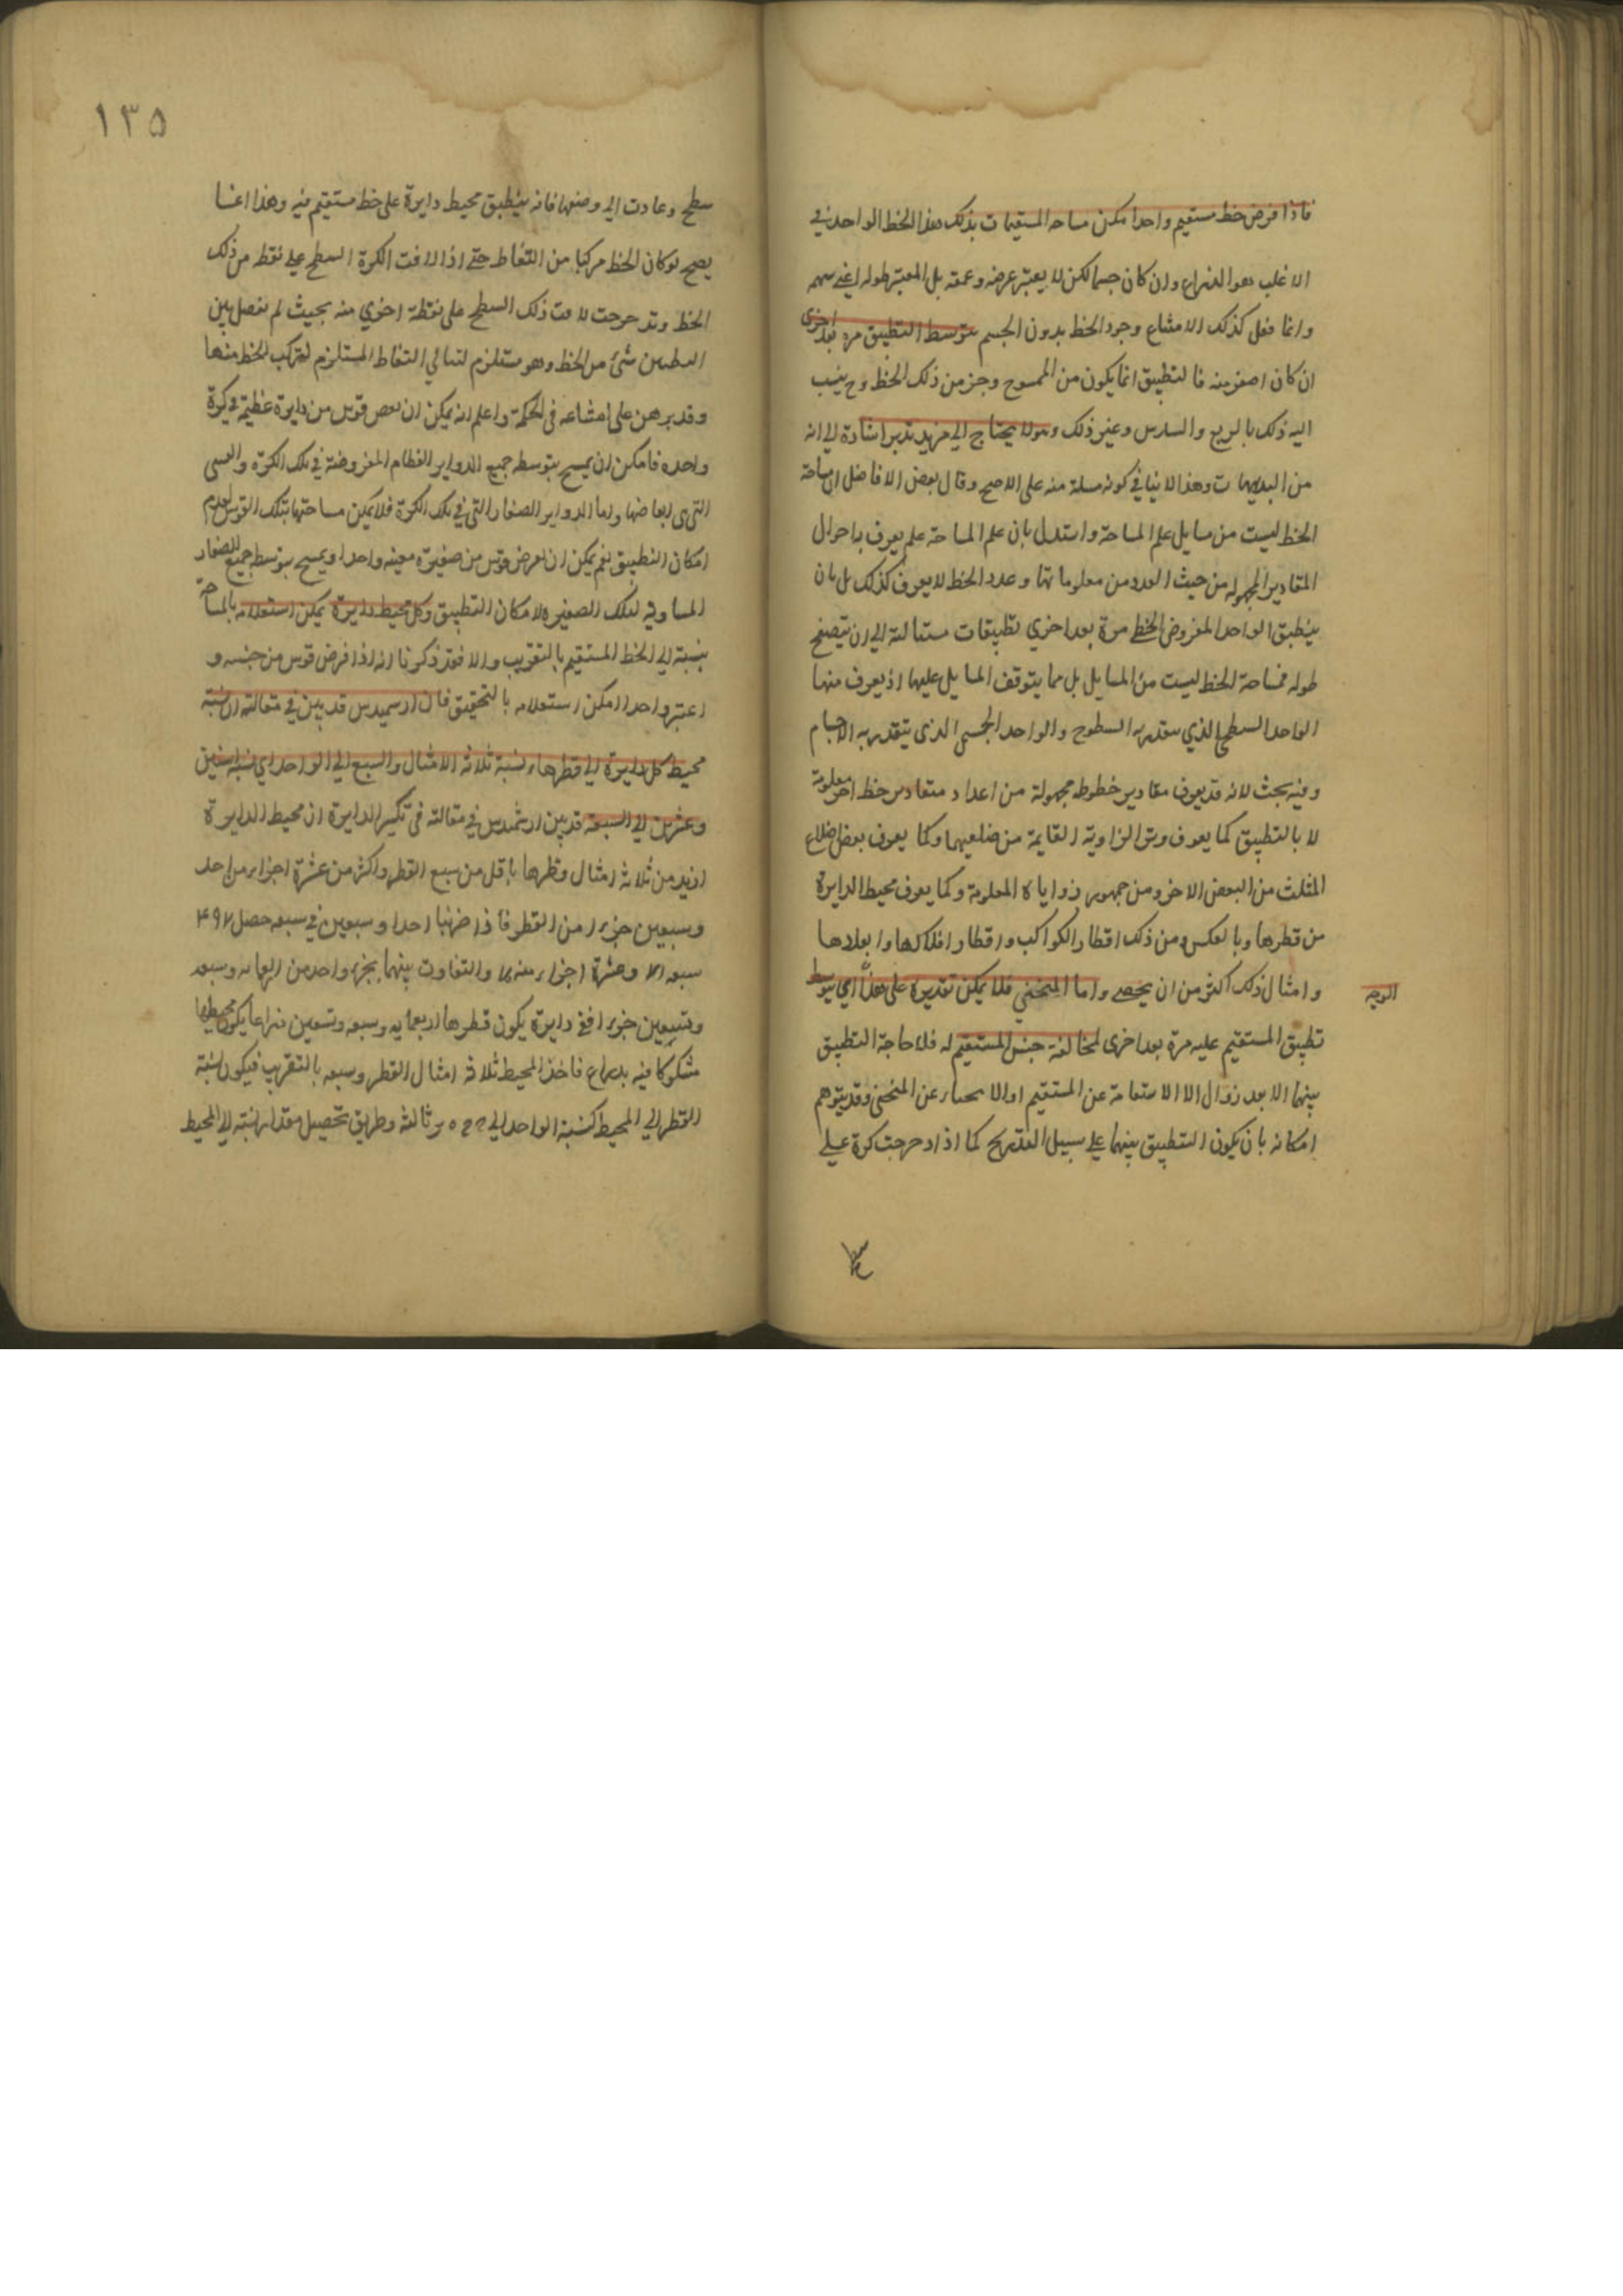 فاذا فرض خط مستقيم واحدا امكن مساحه المستقيمات بذلك هذا الخط الواحد في
الاغلب هو الذراع وان كان جسما لكن لا يعتبر عرضه وعمقه بل المعتبر طوله اعني سهمه
وانما فعل كذلك الامتناع وجود الخط بدون الجسم بتوسط التطبيق مرة بعد اخرى
ان كان اصغر منه فالتطبيق انما يكون من الممسوح وجز من ذلك الخط وح ينسب
اليه ذلك بالربع والسدس وغير ذلك وهو لا يحتاج الى مزيد تدبر اشارة الى انه
من البديهيات وهذا لا ينافي كونه مسلة منه على الاصح وقال بعض الافاضل ان مساحة
الخط ليست من مسايل علم المساحة واستدل بان علم المساحة علم يعرف به احوال
المقادير المجهوله من حيث العدد من معلوماتها وعدد الخط لا يعرف كذلك بل بان
ينطبق الواحد المفروض الخطي مرة بعد اخري تطبيقات متتالية الى ان يتضح
طوله فمساحة الخط ليست من المسايل بل مما يتوقف المسايل عليها اذ يعرف منها
الواحد السطحي الذي يتقدر به السطوح والواحد الجسمي الذى يتقدر به الاجسام
وفيه بحث لانه قد يعرف مقادير خطوط مجهولة من اعداد مقادير خط اخر معلومة
لا بالتطبيق كما يعرف وتر الزاوية القايمة من ضلعيهما وكما يعرف بعض اضلاع
المثلث من البعض الاخر ومن جيوب زواياه المعلومة وكما يعرف محيط الدايرة
من قطرها وبالعكس ومن ذلك اقطار الكواكب واقطار افلاكها وابعادها
وامثال ذلك اكثر من ان يحصى واما المنحني فلا يمكن تقديره على هذا اي بتوسط
الوجه
تطبيق المستقيم عليه مرة بعد اخرى لمخالفة جنس المستقيم له فلا حاجة التطبيق
بينهما الا بعد زوال الاستقامة عن المستقيم او الانحناء عن المنحنى وقد يتوهم
امكانه بان يكون التطبيق بينهما على سبيل التدريج كما اذا دحرجت كرة على
١٣٥
سطح وعادت الى وضعها فانه ينطبق محيط دايرة على خط مستقيم فيه وهذا انما
يصح لو كان الخط مركبا من النقاط حتى اذا لاقت الكرة السطح على نقطة من ذلك
الخط وتدحرجت لاقت ذلك السطح على نقطة اخري منه بحيث لم يفصل بين
النقطتين شئ من الخط وهو مستلزم لتتالي النقاط المستلزم لتركب الخط منها
وقد برهن على امتناعه في الحكمة واعلم انه يمكن ان يفرض قوس من دايرة عظيمة في كرة
واحده فامكن ان يمسح بتوسط جميع الدواير العظام المفروضة في تلك الكرة والقسى
التي هي ابعاضها واما الدواير الصغار التي في تلك الكرة فلا يمكن مساحتها بتلك القوس لعدم
امكان التطبيق نعم يمكن ان يفرض قوس من صغيرة معينه واحدا ويمسح بتوسط جميع الصغار
المساوية لتلك الصغيره لامكان التطبيق وكل محيط دايرة يمكن استعلامه بالمساحة
بنسبة الى الخط المستقيم بالتقريب والا فقد ذكرنا انه اذا فرض قوس من جنسه و
اعتبر واحدا امكن استعلامه بالتحقيق فان ارشميدس قد بين في مقالته ان نسبة
محيط كل دايرة الى قطرها كنسبة ثلاثة الامثال والسبع الى الواحد اي نسبة اثنين
وعشرين الى السبعة قد بين ارشميدس في مقالته في تكسير الدايرة ان محيط الدايرة
ازيد من ثلاثة امثال قطرها باقل من سبع القطر واكثر من عشرة اجزاء من احد
وسبعين جزءا من القطر فاذا ضربنا احدا وسبعين في سبعه حصل ٤٩٧
سبعه ٧١ وعشرة اجزاء منه ٧٠ والتفاوت بينهما بجزء واحد من اربعمايه وسبعه
وتسعين جزءا ففي دايرة يكون قطرها اربعمايه وسبعه وتسعين ذراعا يكون محيطها
مشكوكا فيه بذراع فاخذ المحيط ثلاثة امثال القطر وسبعه بالتقريب فيكون نسبة
القطر الى المحيط كنسبة الواحد الى ثالثة وطريق تحصيل مقدار نسبته الى المحيط